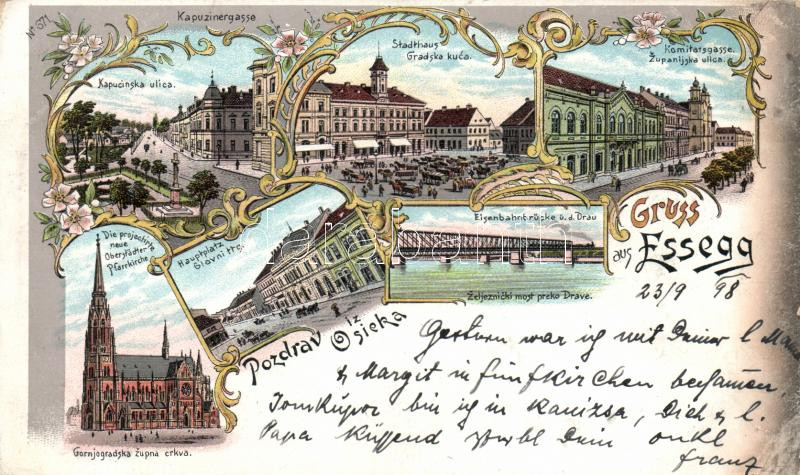 No 671
Kapuzinergasse
Kapućinska ulica.
Stadthaus
Gradska kuća.
Komitatsgasse.
Županijska ulica.
Die projectirte
neue
Oberstädter
Pfarrkirche.
Hauptplatz
Glavni trg.
Eisenbahnbrücke ü. d. Drau
Željeznički most preko Drave.
Gruss
aus Essegg
Pozdrav iz
Osieka
Gornjogradska župna crkva.
23/9 98
Gestern war ich mit Deiner l
& Margit in Fünfkirchen
bin ich in Kanizsa, Dich & l.
Papa küssend Dein onkl
franz